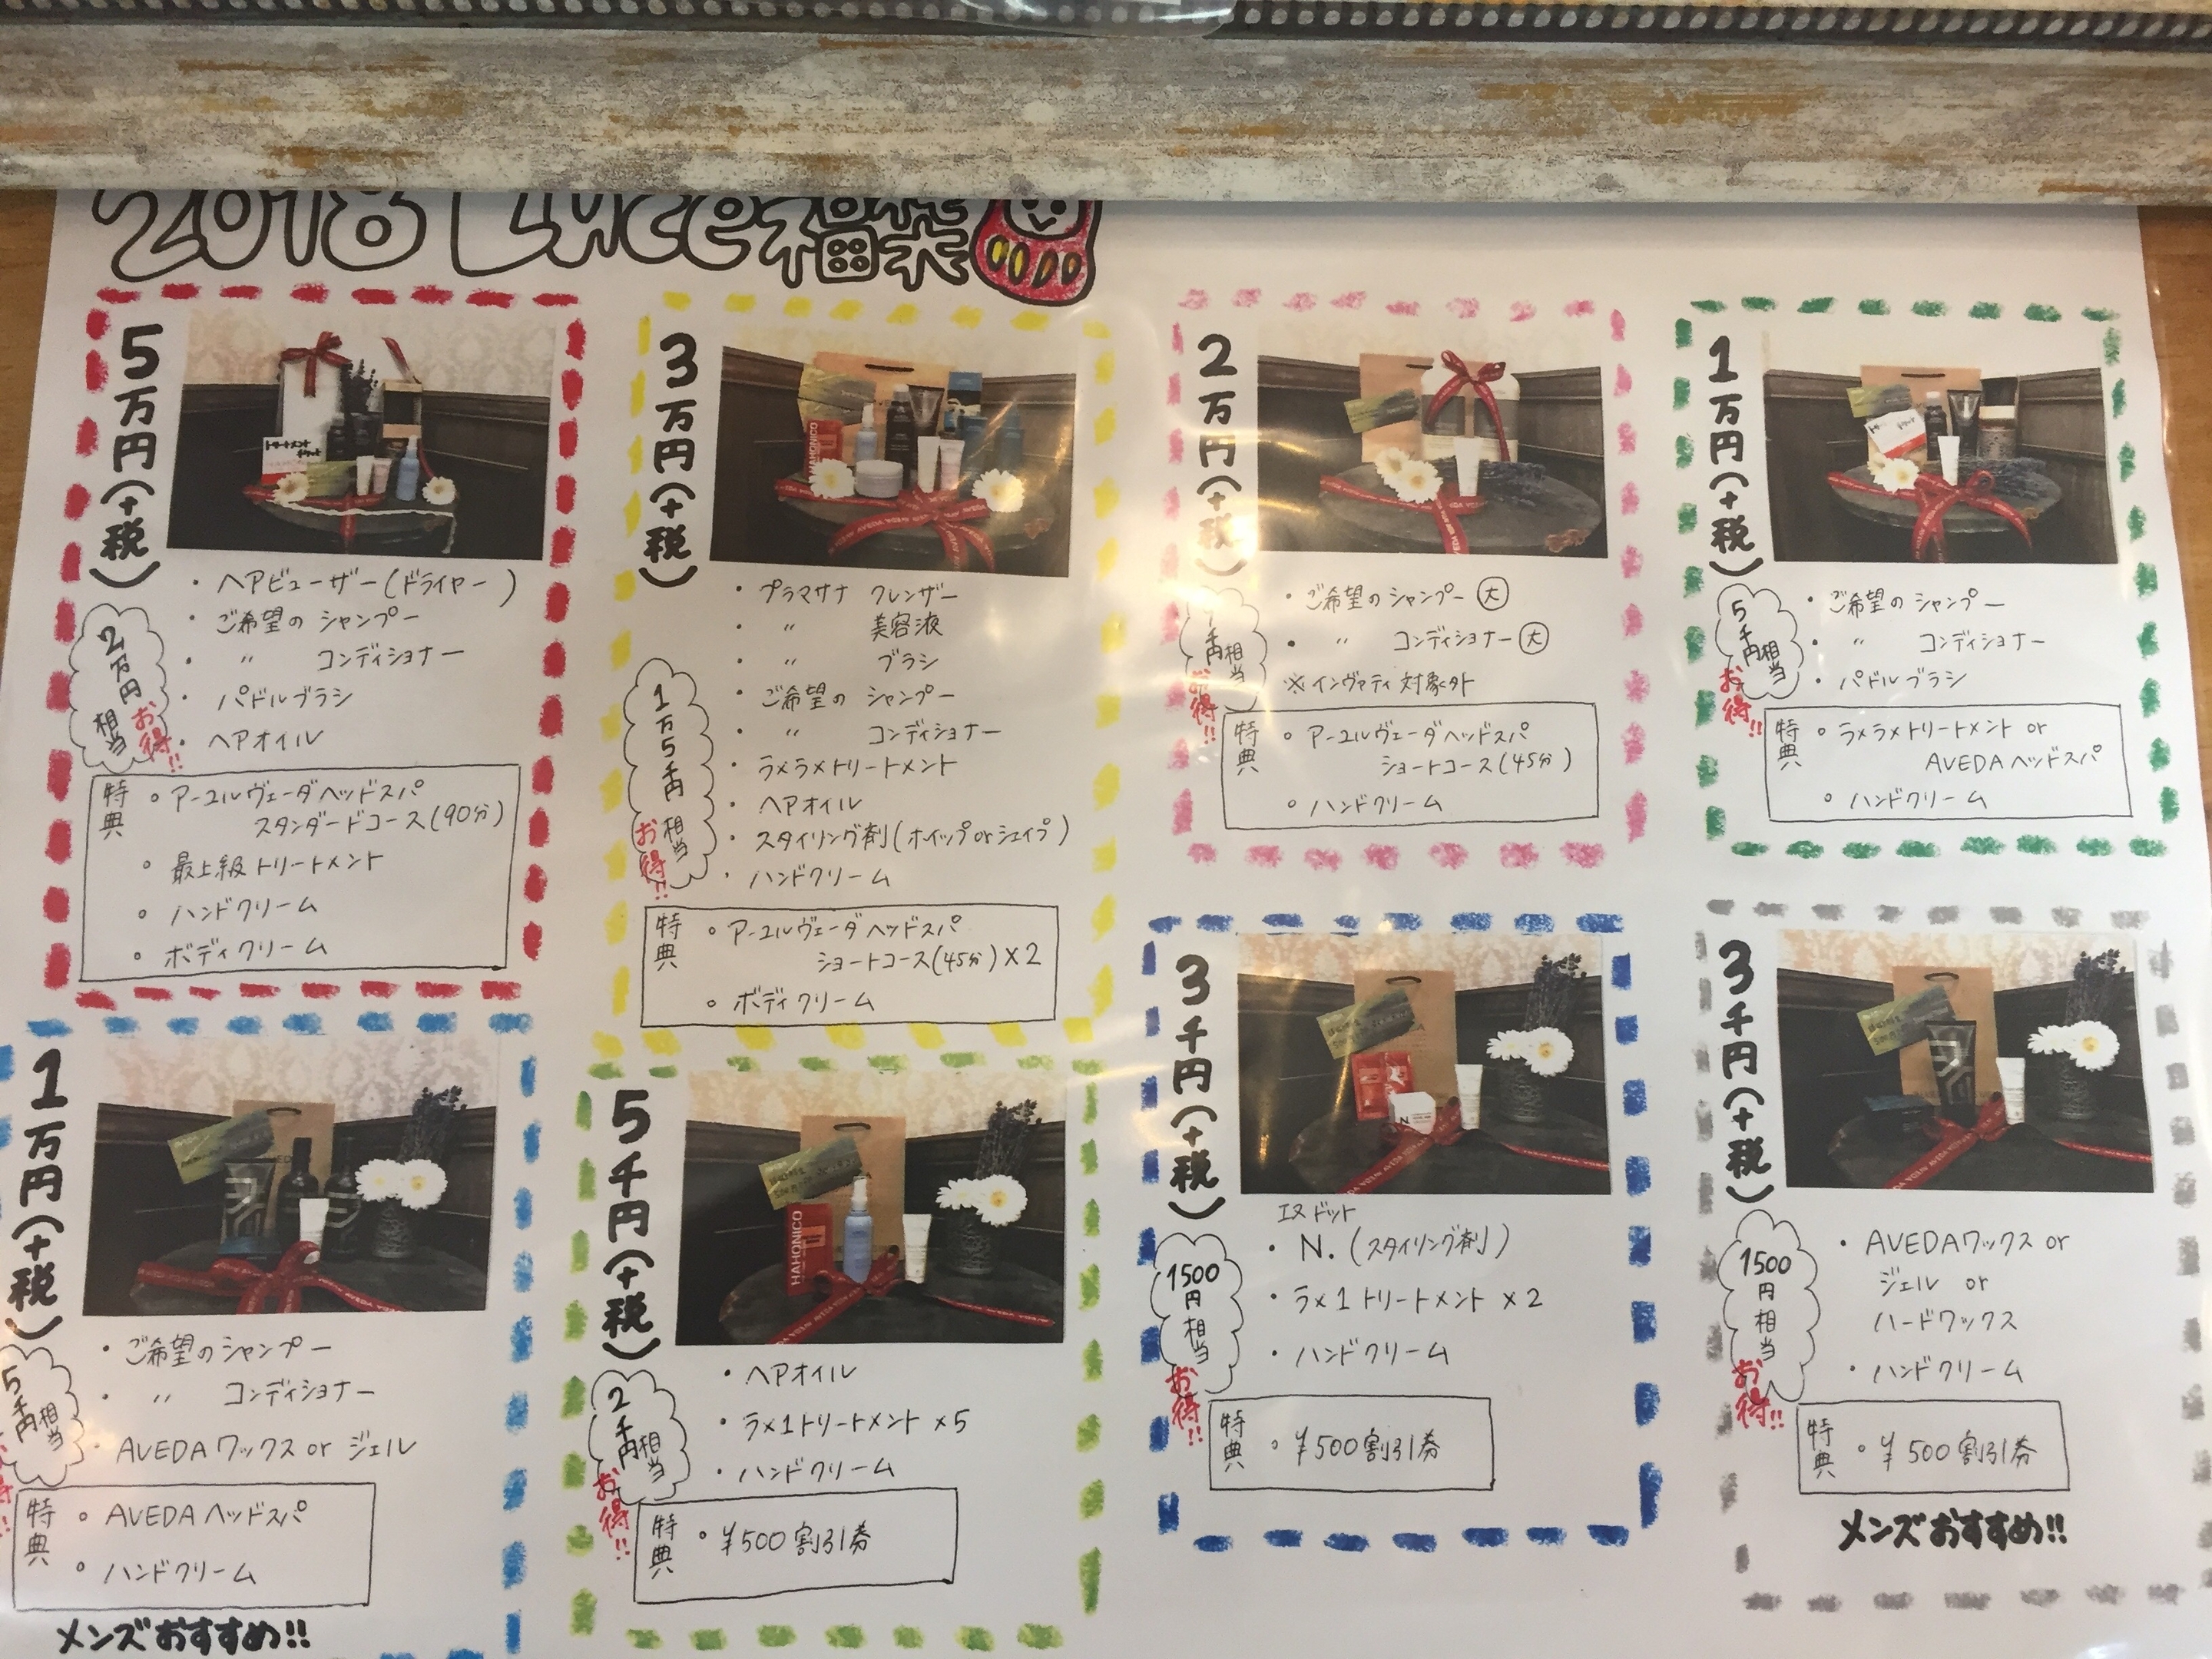 2018 Luce福袋
5万円(+税)
・ヘアビューザー(ドライヤー)
・ご希望のシャンプー
・〃 コンディショナー
・パドルブラシ
・ヘアオイル
2万円相当お得!!
特典
○アーユルヴェーダヘッドスパ
スタンダードコース(90分)
○最上級トリートメント
○ハンドクリーム
○ボディクリーム
3万円(+税)
・プラマサナ クレンザー
・〃 美容液
・〃 ブラシ
・ご希望の シャンプー
・〃 コンディショナー
・ラメラメトリートメント
・ヘアオイル
・スタイリング剤(ホイップorシェイプ)
・ハンドクリーム
1万5千円相当お得!!
特典
○アーユルヴェーダヘッドスパ
ショートコース(45分)×2
○ボディクリーム
2万円(+税)
・ご希望のシャンプー大
・〃 コンディショナー大
※インヴァティ対象外
千円相当お得!!
特典
○アーユルヴェーダヘッドスパ
ショートコース(45分)
○ハンドクリーム
1万円(+税)
・ご希望のシャンプー
・〃 コンディショナー
・パドルブラシ
5千円相当お得!!
特典
○ラメラメトリートメント or
AVEDAヘッドスパ
○ハンドクリーム
1万円(+税)
・ご希望のシャンプー
・〃 コンディショナー
・AVEDAワックス or ジェル
5千円相当
特典
○AVEDAヘッドスパ
○ハンドクリーム
メンズおすすめ!!
5千円(+税)
HAHONICO
・ヘアオイル
・ラメ1トリートメント ×5
・ハンドクリーム
2千円相当お得!!
特典
○¥500割引券
3千円(+税)
エヌドット
・N.(スタイリング剤)
・ラメ1トリートメント ×2
・ハンドクリーム
1500円相当お得!!
特典
○¥500割引券
3千円(+税)
・AVEDAワックス or
ジェル or
ハードワックス
・ハンドクリーム
1500円相当お得!!
特典
○¥500割引券
メンズおすすめ!!